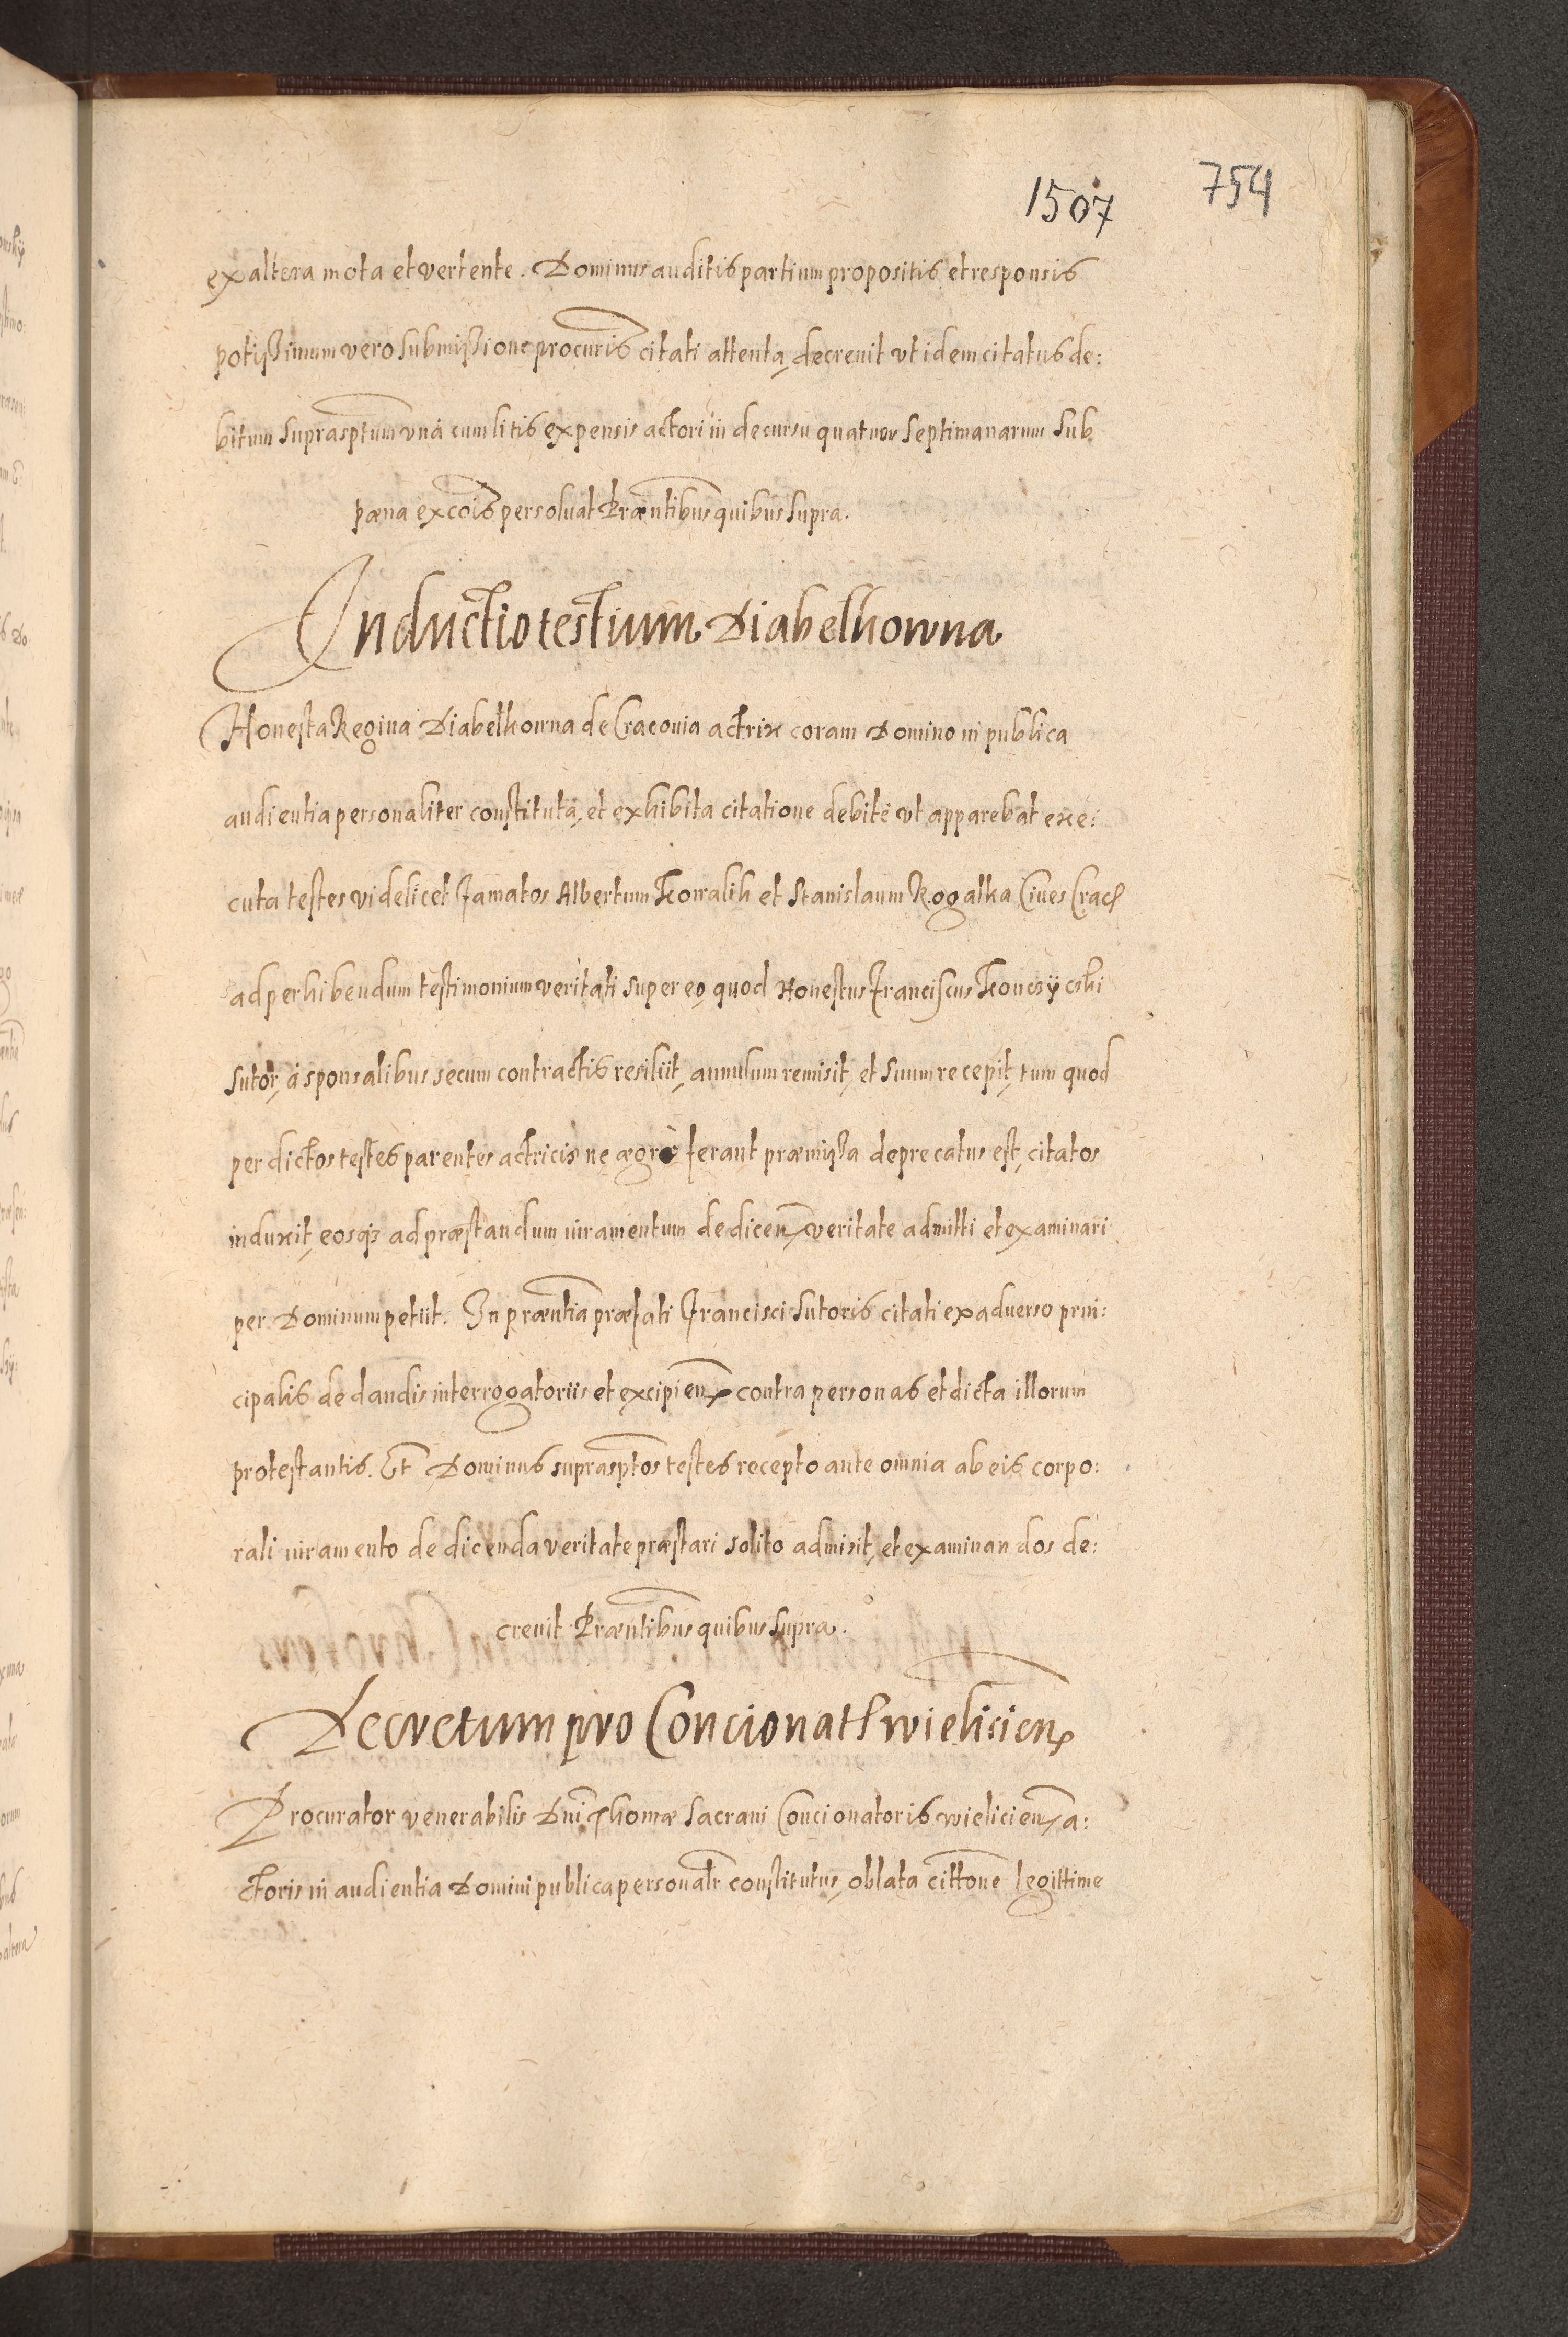 1507 754
ex altera mota et vertente. Dominus auditis partium propositis et responsis
potißimum vero submißione procuris citati attenta, decrevit vt idem citatus de:
bitum suprasptum vnà cum litis expensis actori in decursu quatuor septimanarum sub
pæna excois persoluat Præntibus quibus supra.
Inductio testium Diabelkowna
Honesta Regina Diabelkowna de Cracouia actrix coram Domino in publica
audientia personaliter constituta, et exhibita citatione debitè vt apparebat exe:
cuta testes videlicet famatos Albertum Kowalik et Stanislaum Rogalka Ciues Crac
ad perhibendum testimonium veritati super eo, quod Honestus Franciscus Konczÿczki
sutor, à sponsalibus secum contractis resiliit, annulum remisit, et suum recepit, tum quod
per dictos testes parentes actricis ne ægrè ferant præmißa deprecatus est, citatos
induxit, eosqs ad præstandum iuramentum de dicen veritate admitti et examinari
per Dominum petiit. In præntia præfati Francisci sutoris citati ex aduerso prin:
cipalis de dandis interrogatoriis et excipien contra personas et dicta illorum
protestantis. Et Dominus suprasptos testes recepto ante omnia ab eis corpo:
rali iuramento de dicenda veritate præstari solito admisit, et examinandos de:
crevit Præntibus quibus supra.
Decretum pro Concionat wielicien
Procurator venerabilis Dni Thomæ Sacrani Concionatoris wielicien a:
ctoris in audientia Domini publica personatr constitutus, oblata cittone legittime